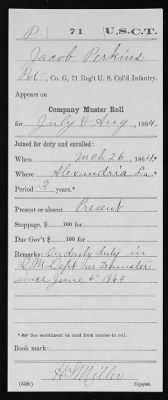 P 71 U.S.C.T.
Jacob Perkins
Pvt., Co. G, 71 Reg't U. S. Col'd Infantry.
Appears on
Company Muster Roll
for July & Aug, 1864.
Joined for duty and enrolled:
When Mch 26, 1864*
Where Alexandria La*
Period 3 years.*
Present or absent Present
Stoppage, $ 100 for
Due Gov't $ 100 for
Remarks: On daily duty in
Q M Dept as Teamster
since June 6" 1864
*See enrollment on card from muster-in roll.
Book mark:
H S Miller
(358c) Copyist.